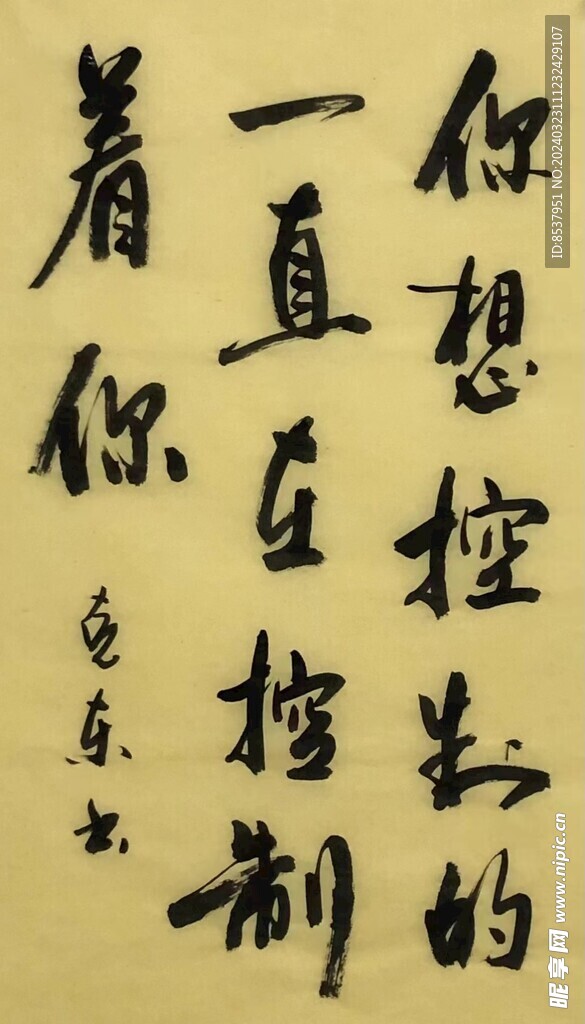 你想控制的
一直在控制
着你
克东书
ID:8537951 NO:20240323111232429107
昵享网 www.nipic.cn